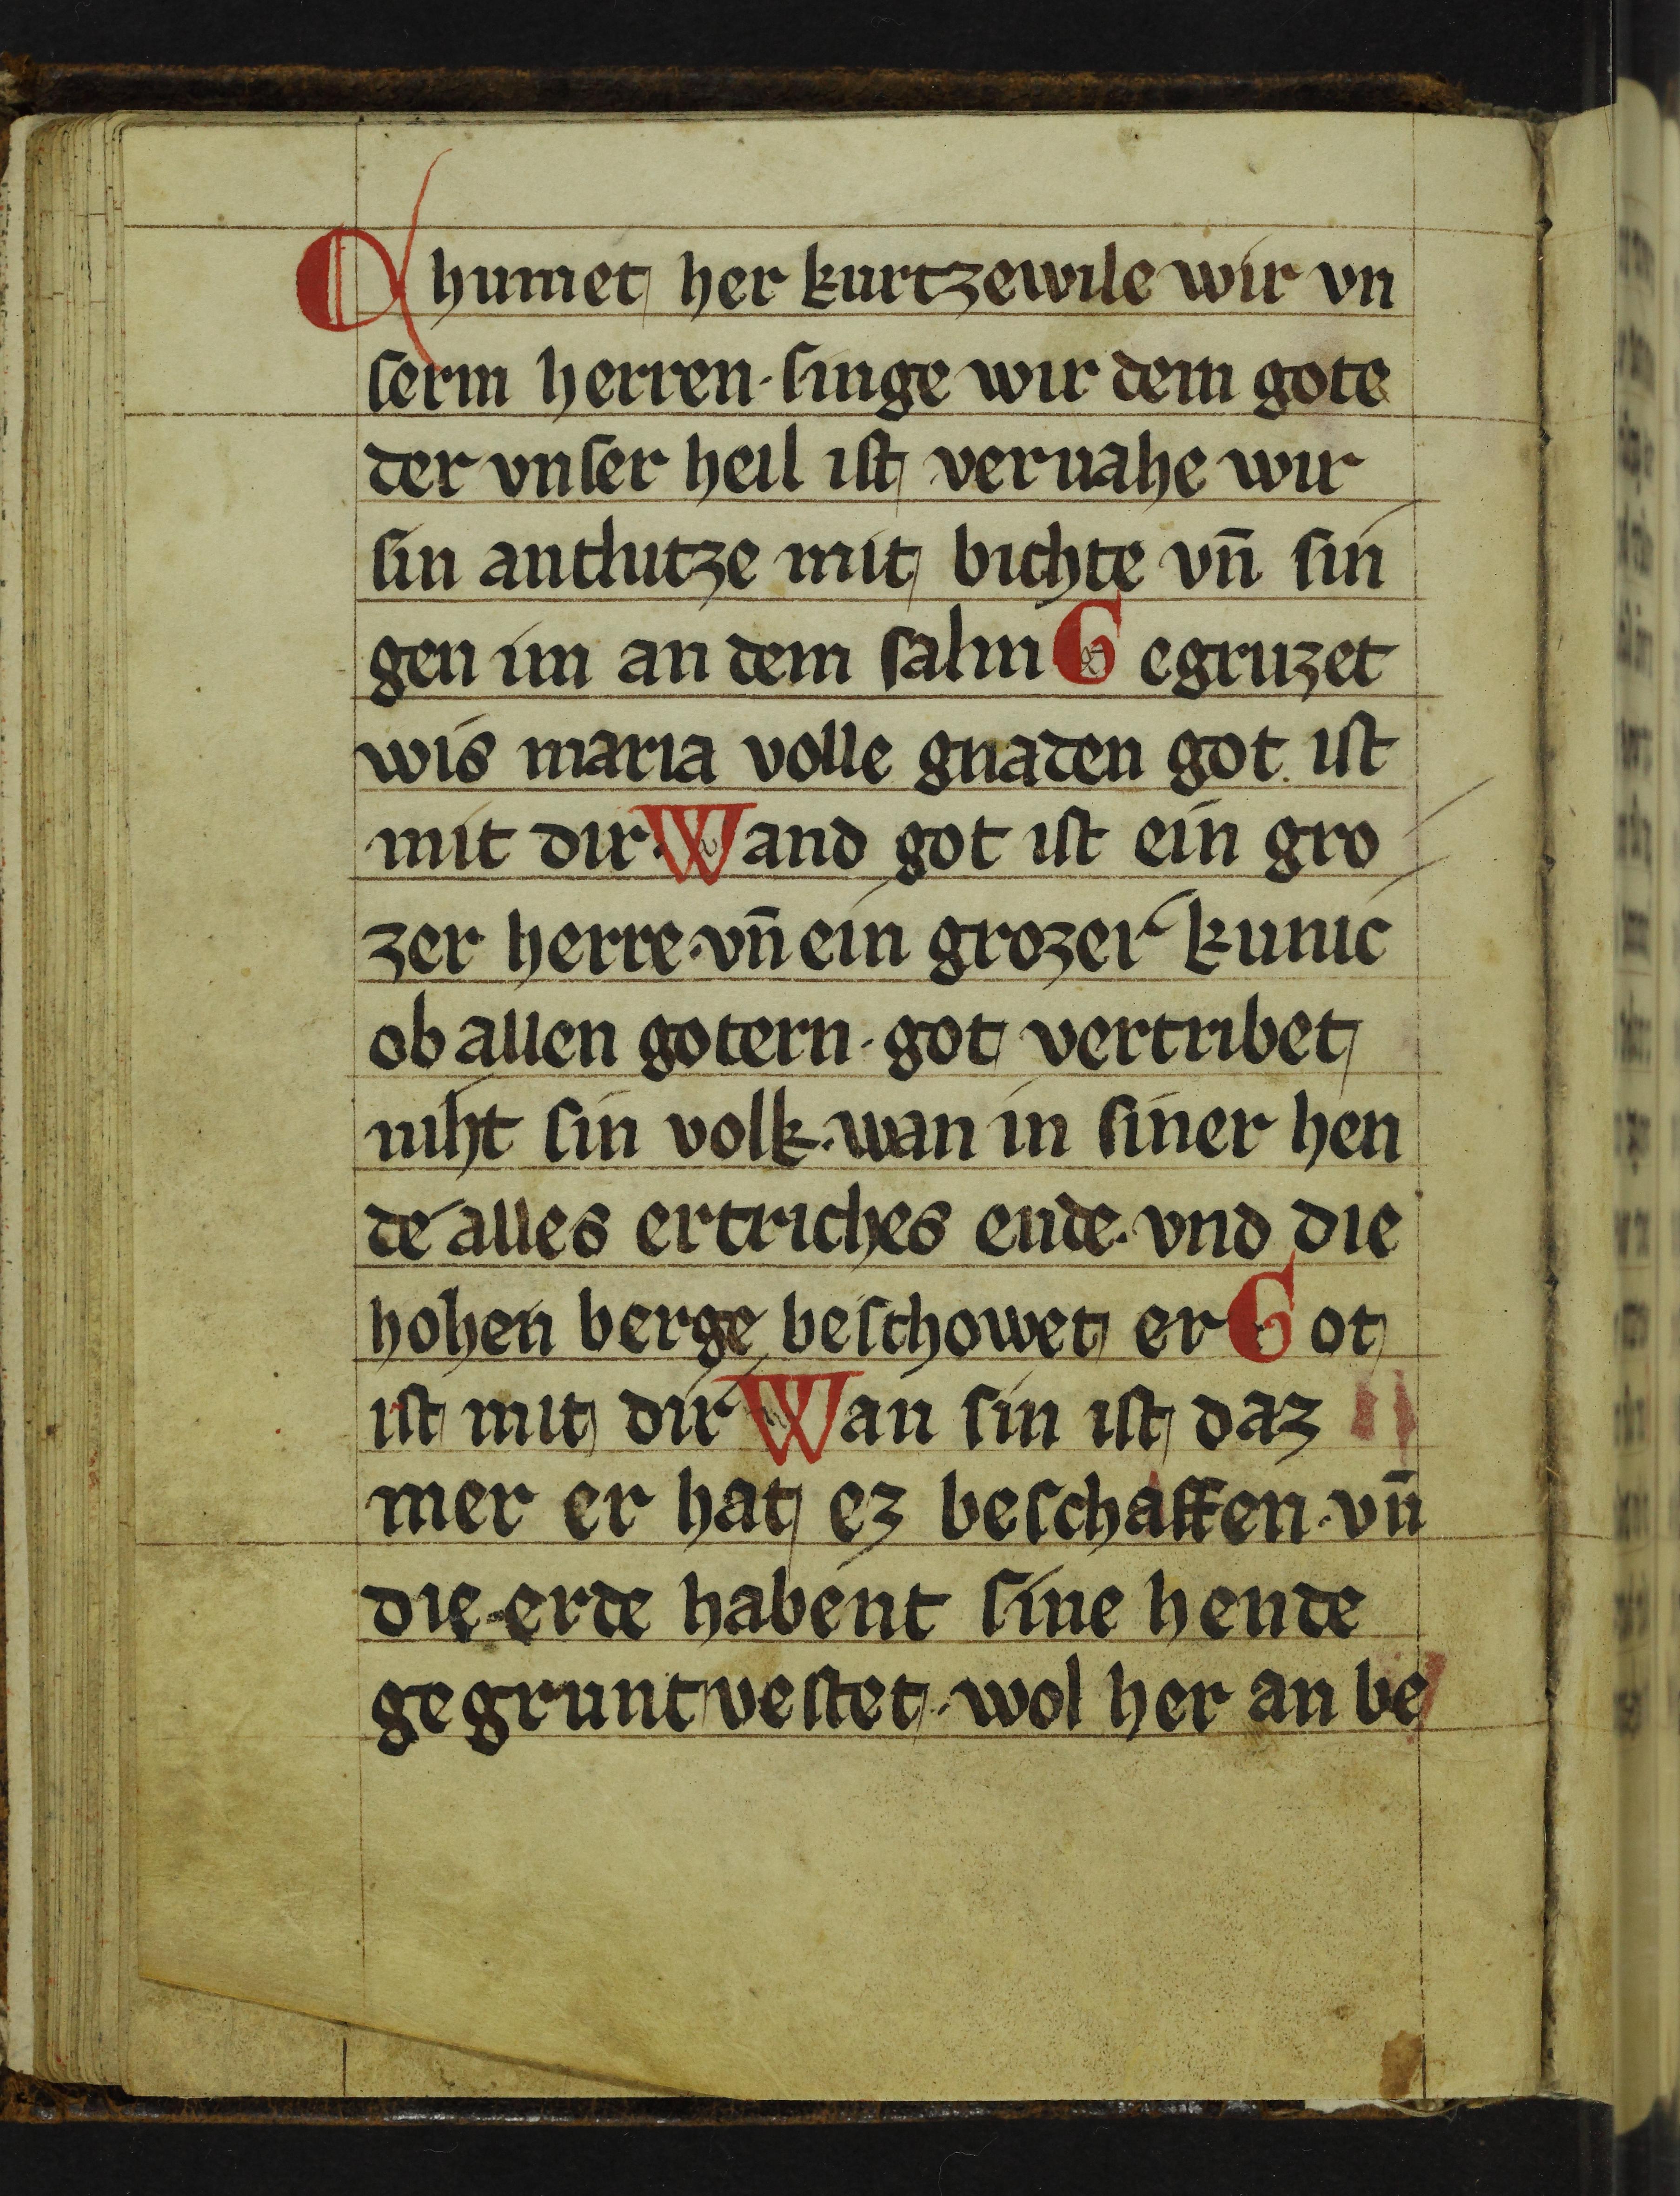 Chumet her kurtzewile wir vn
ſerm herren · ſinge wir dem gote
der vnſer heil iſt veruahe wir
ſin antlutze mit bichte vn̄ ſin
gen im an dem ſalm Gegruzet
wis maria volle gnaden got iſt
mit dir · Wand got iſt ein gro
zer herre · vn̄ ein grozer kunic
ob allen gotern · got vertribet
niht ſin volk · wan in ſiner hen
de alles ertriches ende · vnd die
hohen berge beſchowet er Got
iſt mit dir Wan ſin iſt daz
mer er hat ez beſchaffen · vn̄
die erde habent ſine hende
gegruntveſtet · wol her an be